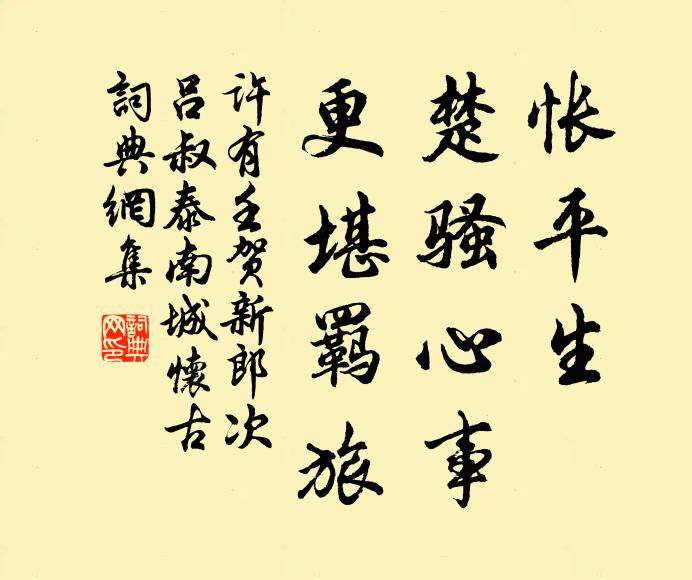 怅平生
楚骚心事
更堪羁旅
许有壬贺新郎次
吕叔泰南城怀古
詞典網集
詞典网印